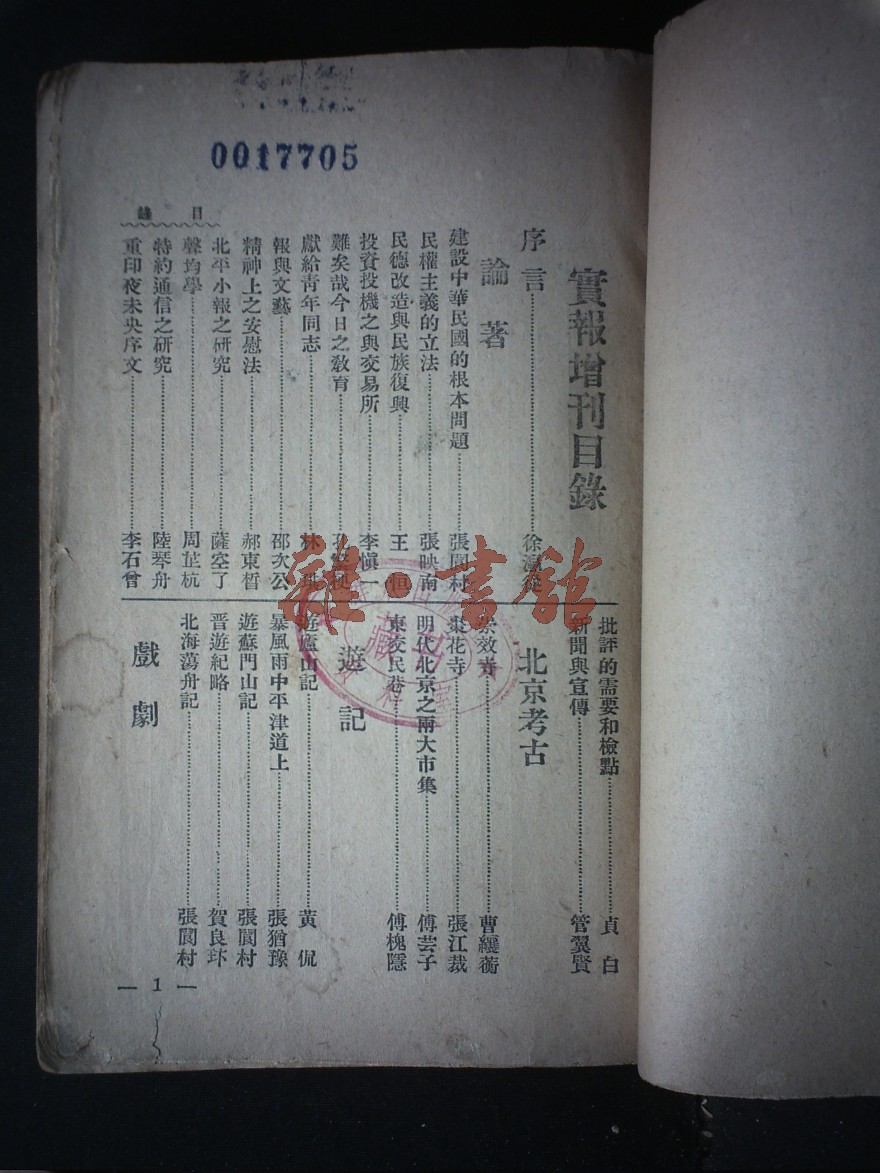 0017705
目錄
實報增刊目錄
序言 徐瀛從
論著
建設中華民國的根本問題 張閬村
民權主義的立法 張映南
民德改造與民族復興 王恒
投資投機之與交易所 李慎一
難矣哉今日之教育
獻給青年同志 林
報與文藝 邵次公
精神上之安慰法 郝東晳
北平小報之研究 薩空了
聲均學 周芷杭
特約通信之研究 陸琴舟
重印夜未央序文 李石曾
批評的需要和檢點 貞白
新聞與宣傳 管翼賢
北京考古
崇效寺 曹纕蘅
棗花寺 張江裁
明代北京之兩大市集 傅芸子
東交民巷 傅槐隱
遊記
遊廬山記 黃侃
暴風雨中平津道上 張猶豫
遊蘇門山記 張閬村
晉遊紀略 賀良环
北海蕩舟記 張閬村
戲劇
— 1 —
雜·書館